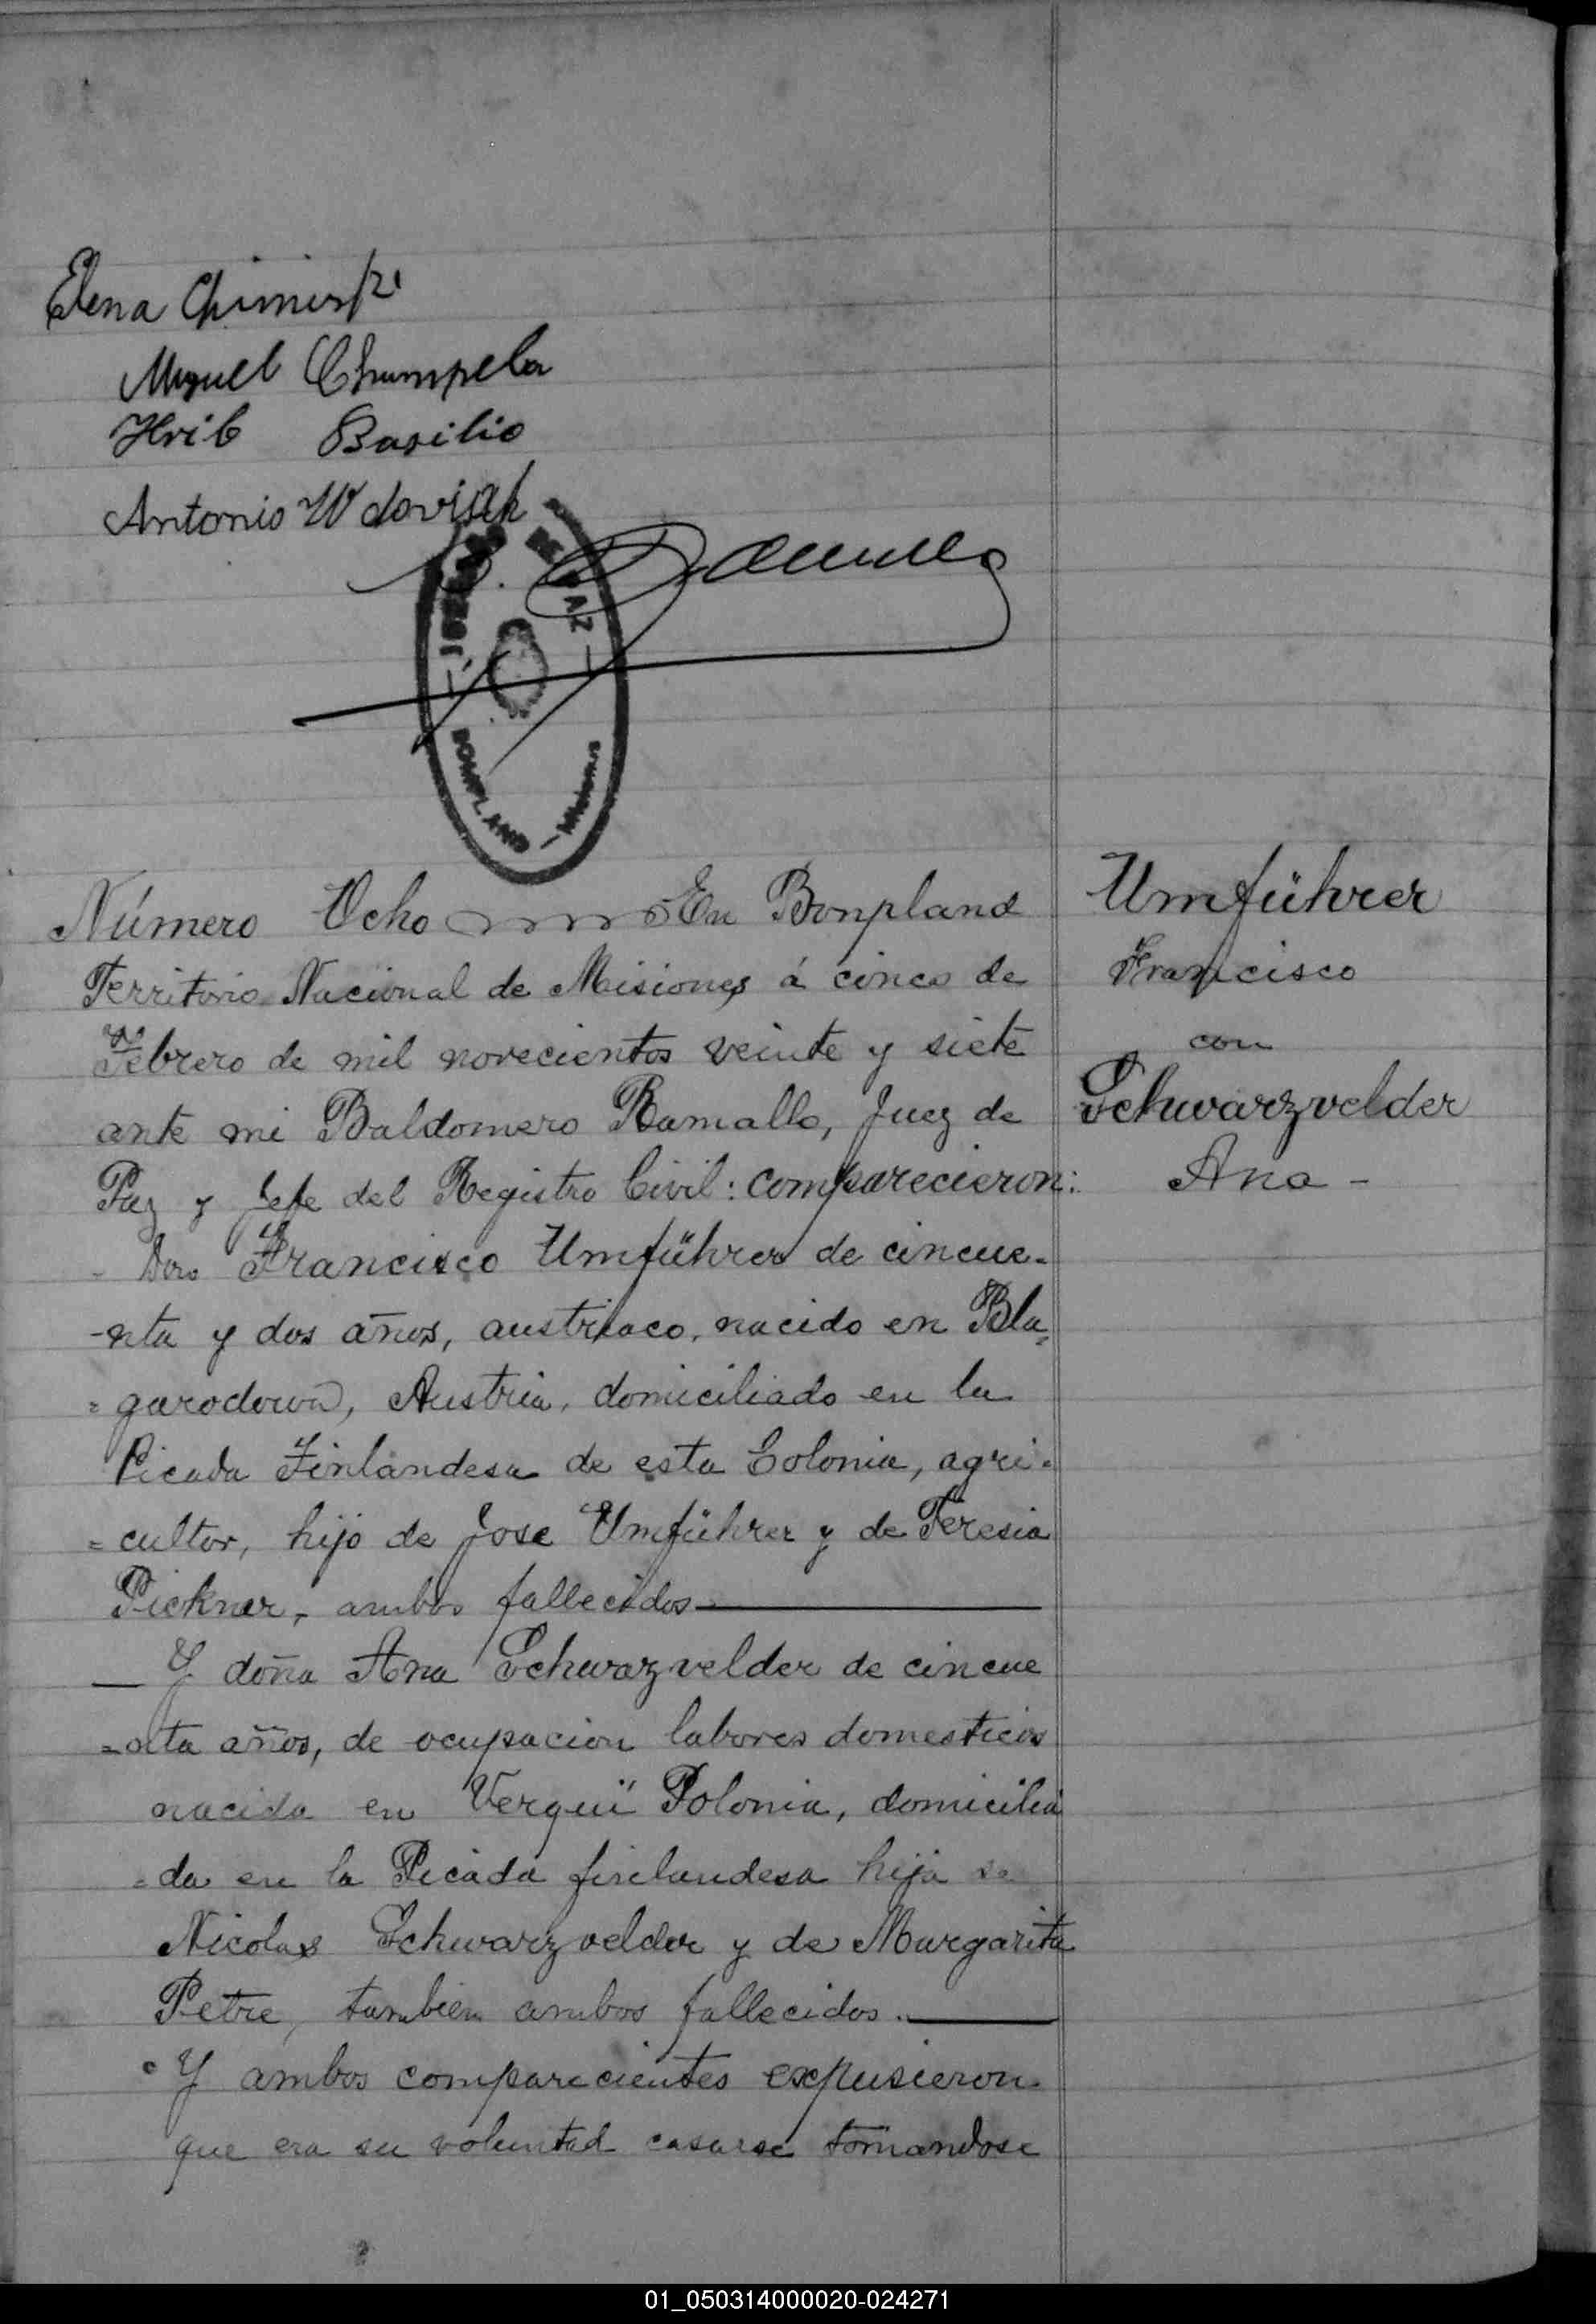 Elena
Miguel Chumpela
Hrib Basilio
Antonio Wdoviak
B. Ramallo
JUZGADO DE PAZ
BOMPLAND — Misiones
Número Ocho En Bonpland
Territorio Nacional de Misiones á cinco de
Febrero de mil novecientos veinte y siete
ante mi Baldomero Ramallo, Juez de
Paz y Jefe del Registro Civil: comparecieron:
- Don Francisco Umführer de cincue-
-nta y dos años, austriaco, nacido en Bla=
=garodown, Austria, domiciliado en la
Picada Finlandesa de esta Colonia, agri=
=cultor, hijo de Jose Umführer y de Teresia
Pickner, ambos fallecidos
— Y doña Ana Schwarzvelder de cincue
=nta años, de ocupacion labores domesticos
nacida en Polonia, domicilia
=da en la Picada finlandesa hija de
Nicolas Schwarzvelder y de Margarita
Petre, tambien ambos fallecidos.
Y ambos comparecientes expusieron
que era su voluntad casarse tomandose
Umführer
Francisco
con
Schwarzvelder
Ana -
01_050314000020-024271